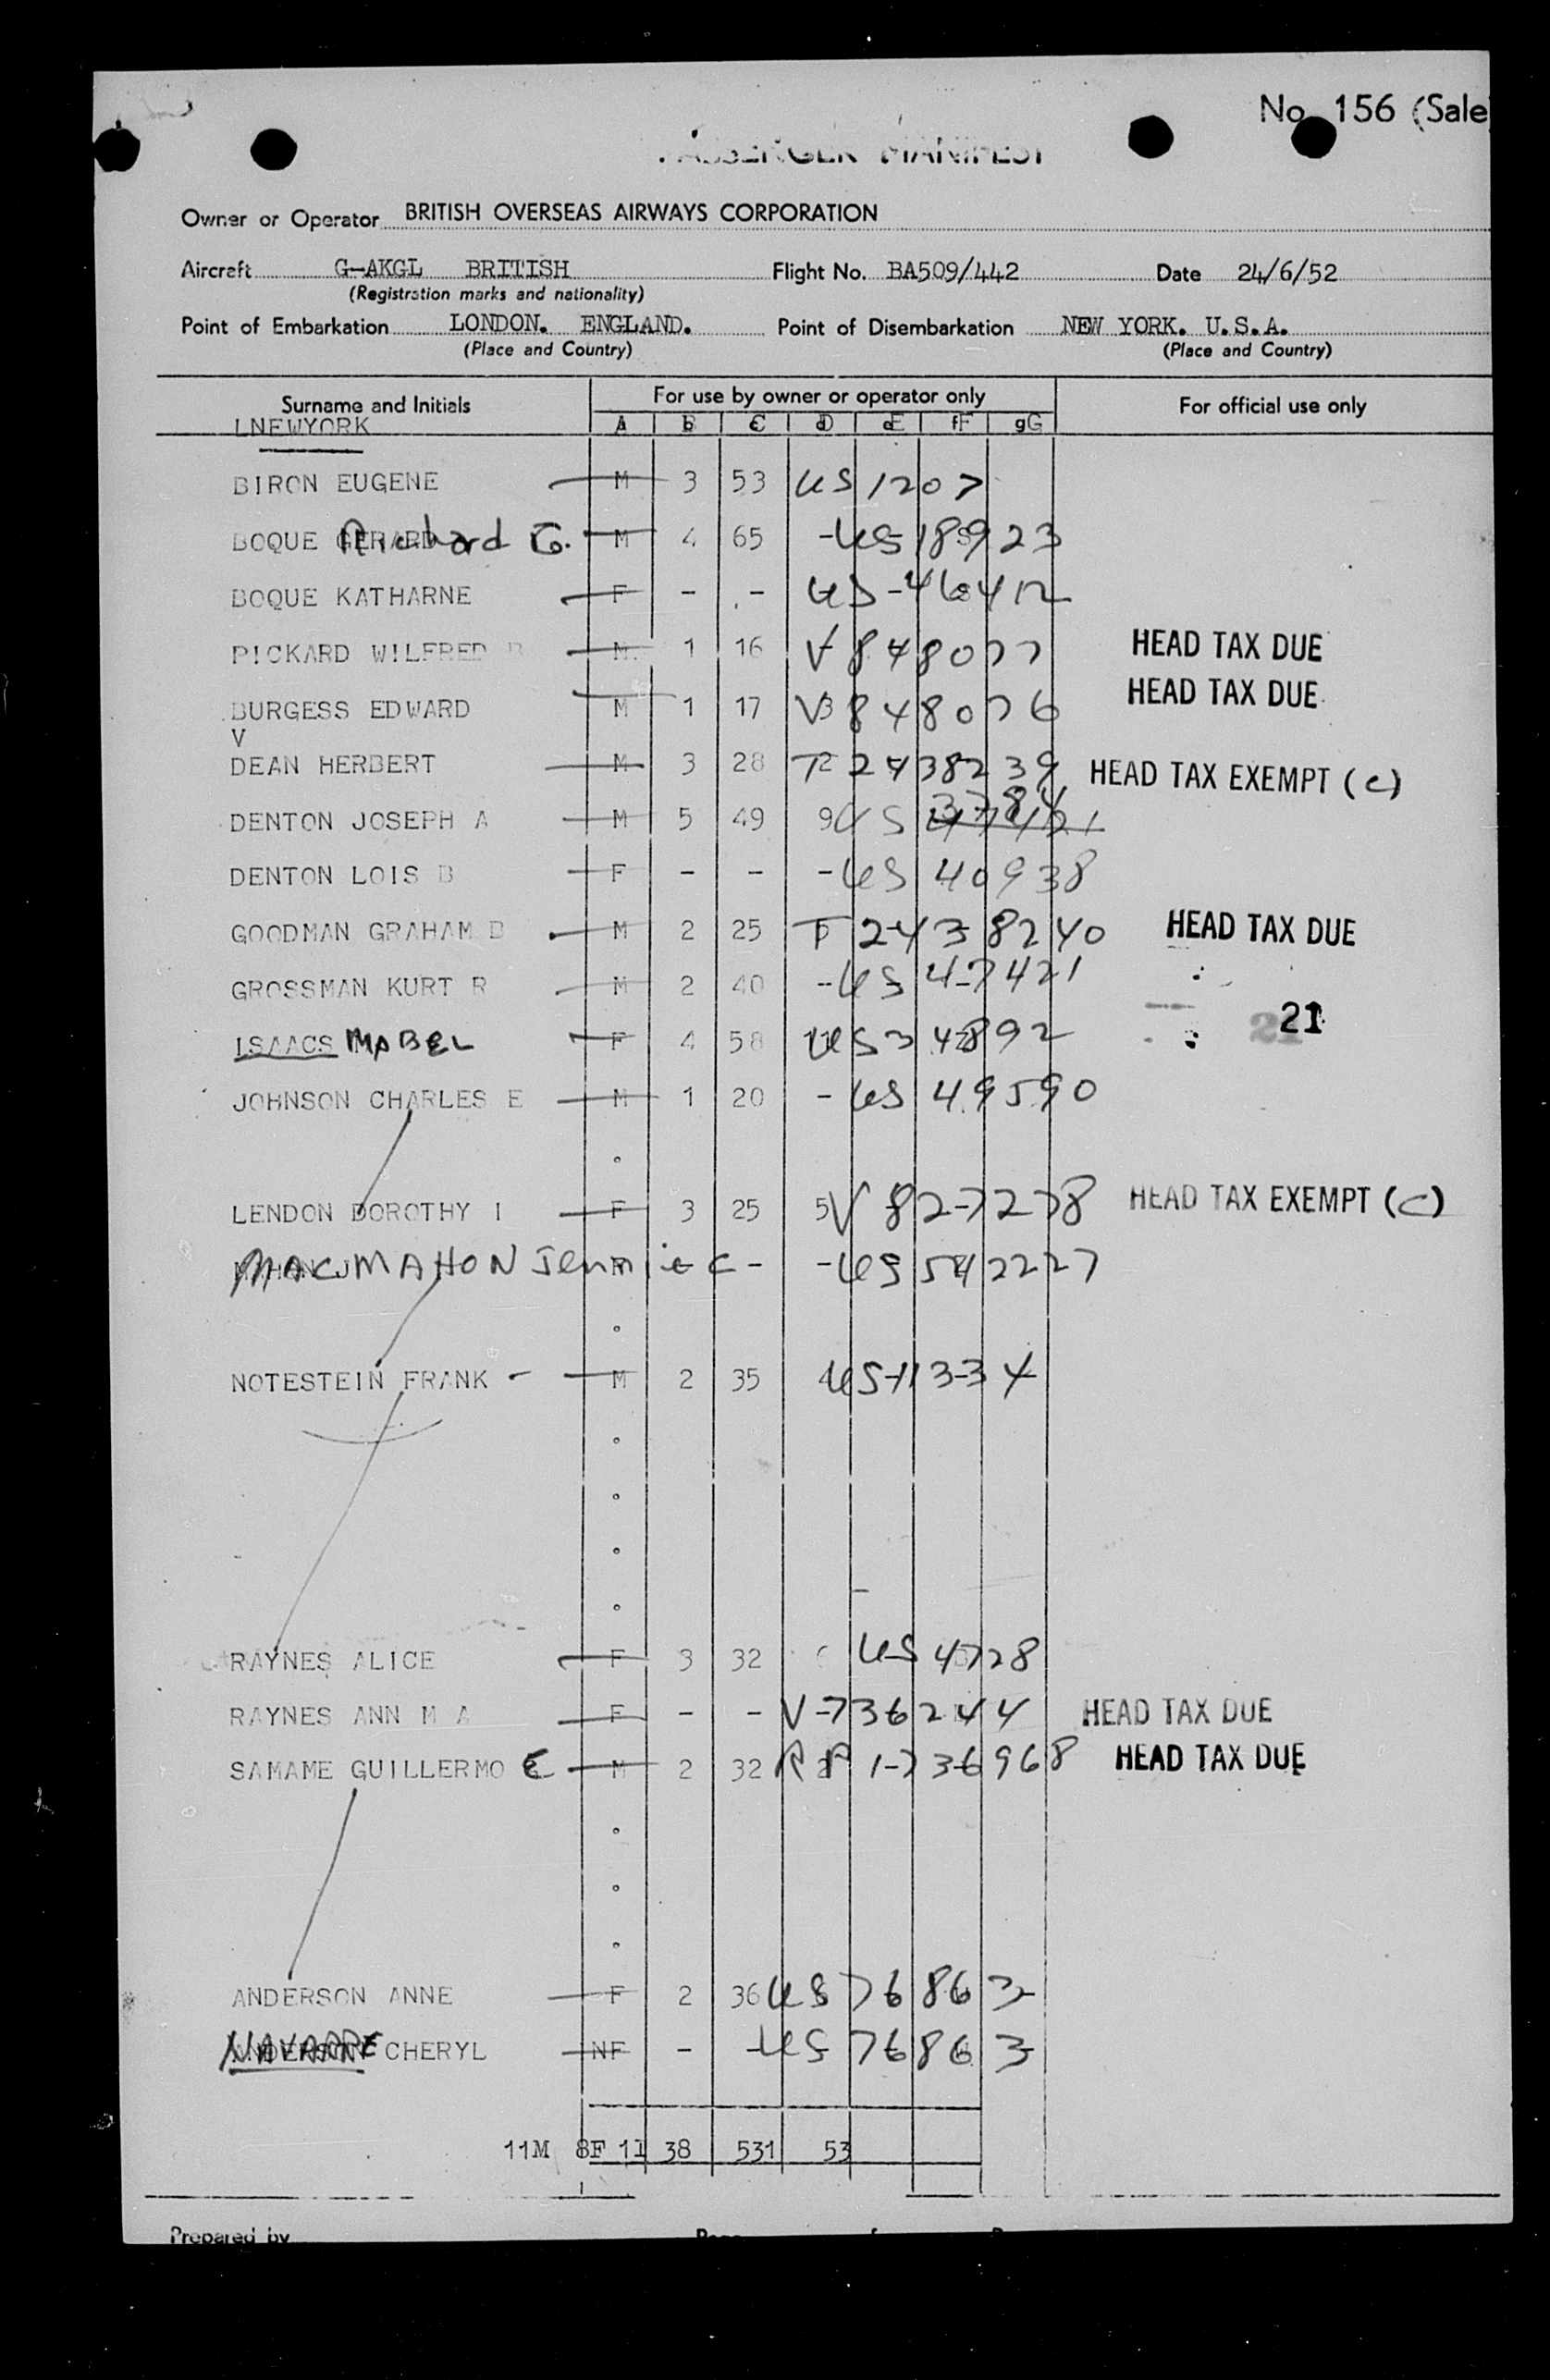 No. 156 (Sale
PASSENGER MANIFEST
Owner or Operator BRITISH OVERSEAS AIRWAYS CORPORATION
Aircraft G-AKGL BRITISH Flight No. BA509/442 Date 24/6/52
(Registration marks and nationality)
Point of Embarkation LONDON. ENGLAND. Point of Disembarkation NEW YORK. U.S.A.
(Place and Country) (Place and Country)
Surname and Initials For use by owner or operator only For official use only
LNEWYORK A B C D E F G
BIRON EUGENE M 3 53 US 1207
BOQUE GERARD Richard G. M 4 65 - US 18923
BOQUE KATHARNE F - - US-46412
PICKARD WILFRED M 1 16 V 848077 HEAD TAX DUE
BURGESS EDWARD M 1 17 V 848076 HEAD TAX DUE
V
DEAN HERBERT M 3 28 T 2438239 HEAD TAX EXEMPT (C)
DENTON JOSEPH A M 5 49 9 US 3784
DENTON LOIS B F - - - US 40938
GOODMAN GRAHAM D M 2 25 T 2438240 HEAD TAX DUE
GROSSMAN KURT R M 2 40 - US 47421
ISAACS MABEL F 4 58 US 34892 21
JOHNSON CHARLES E M 1 20 - US 49590
LENDON DOROTHY I F 3 25 5 V 827278 HEAD TAX EXEMPT (C)
MACMAHON Jennie C - - US 542227
NOTESTEIN FRANK M 2 35 US 11334
RAYNES ALICE F 3 32 US 4728
RAYNES ANN M A F - - V-736244 HEAD TAX DUE
SAMAME GUILLERMO E M 2 32 RP 1-736968 HEAD TAX DUE
ANDERSON ANNE F 2 36 US 76863
NAVARRE CHERYL NF - - US 76863
11M 8F 1I 38 531 53
Prepared by